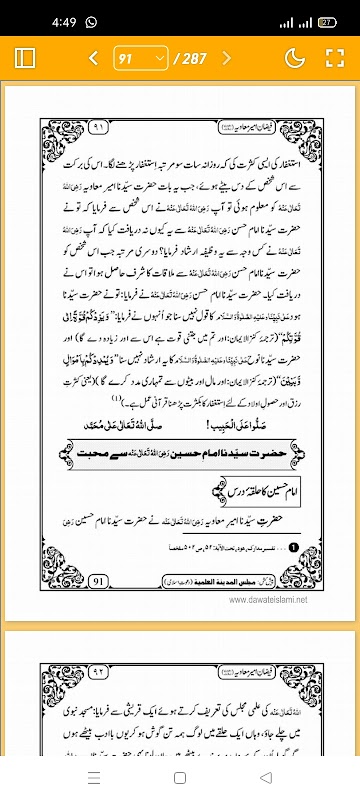 4:49
27
91 / 287
۹۱
فیضانِ امیر معاویہ
استغفار کی ایسی کثرت کی کہ روزانہ سات سو مرتبہ اِستغفار پڑھنے لگا۔ اس کی برکت
سے اس شخص کے دس بیٹے ہوئے، جب یہ بات حضرت سیّدنا امیر معاویہ رَضِیَ اللہُ
تَعَالٰی عَنْہُ کو معلوم ہوئی تو آپ رَضِیَ اللہُ تَعَالٰی عَنْہُ نے اس شخص سے فرمایا کہ تو نے
حضرت سیّدنا امام حسن رَضِیَ اللہُ تَعَالٰی عَنْہُ سے یہ کیوں نہ دریافت کیا کہ آپ رَضِیَ اللہُ
تَعَالٰی عَنْہُ نے کس وجہ سے یہ وظیفہ ارشاد فرمایا؟ دوسری مرتبہ جب اس شخص کو
حضرت سیّدنا امام حسن رَضِیَ اللہُ تَعَالٰی عَنْہُ سے ملاقات کا شرف حاصل ہوا تو اس نے
دریافت کیا۔ حضرت سیّدنا امام حسن رَضِیَ اللہُ تَعَالٰی عَنْہُ نے فرمایا: تو نے حضرت سیّدنا
ہود عَلٰی نَبِیِّنَا وَعَلَیْہِ الصَّلٰوۃُ وَالسَّلَام کا قول نہیں سنا جو اُنہوں نے فرمایا: ”وَیَزِدْکُمْ قُوَّۃً اِلٰی
قُوَّتِکُمْ“ (ترجمۂ کنز الایمان: اور تم میں جتنی قوت ہے اس سے اور زیادہ دے گا) اور
حضرت سیّدنا نوح عَلٰی نَبِیِّنَا وَعَلَیْہِ الصَّلٰوۃُ وَالسَّلَام کا یہ ارشاد نہیں سنا ”وَیُمْدِدْکُمْ بِاَمْوَالٍ
وَّبَنِیْنَ“ (ترجمۂ کنز الایمان: اور مال اور بیٹوں سے تمہاری مدد کرے گا) (یعنی کثرتِ
رزق اور حصولِ اولاد کے لئے استغفار کا بکثرت پڑھنا قرآنی عمل ہے۔) (1)
صَلُّوْا عَلَی الْحَبِیْب! صلَّی اللہُ تَعَالٰی عَلٰی مُحَمَّد
حضرت سیّدنا امام حسین رَضِیَ اللہُ تَعَالٰی عَنْہُ سے محبت
امام حسین کا حلقۂ درس
حضرتِ سیّدنا امیر معاویہ رَضِیَ اللہُ تَعَالٰی عَنْہُ نے حضرت سیّدنا امام حسین رَضِیَ
1 ... تفسیر مدارک، ھود، تحت الآیۃ: ۵۲، ص ۵۰۲ ملخصاً
91
پیش کش: مجلس المدینۃ العلمیۃ (دعوتِ اسلامی)
www.dawateislami.net
۹۲
فیضانِ امیر معاویہ
اللہُ تَعَالٰی عَنْہُ کی علمی مجلس کی تعریف کرتے ہوئے ایک قریشی سے فرمایا: مسجد نبوی
میں چلے جاؤ، وہاں ایک حلقے میں لوگ ہمہ تن گوش ہو کر یوں باادب بیٹھے ہوں